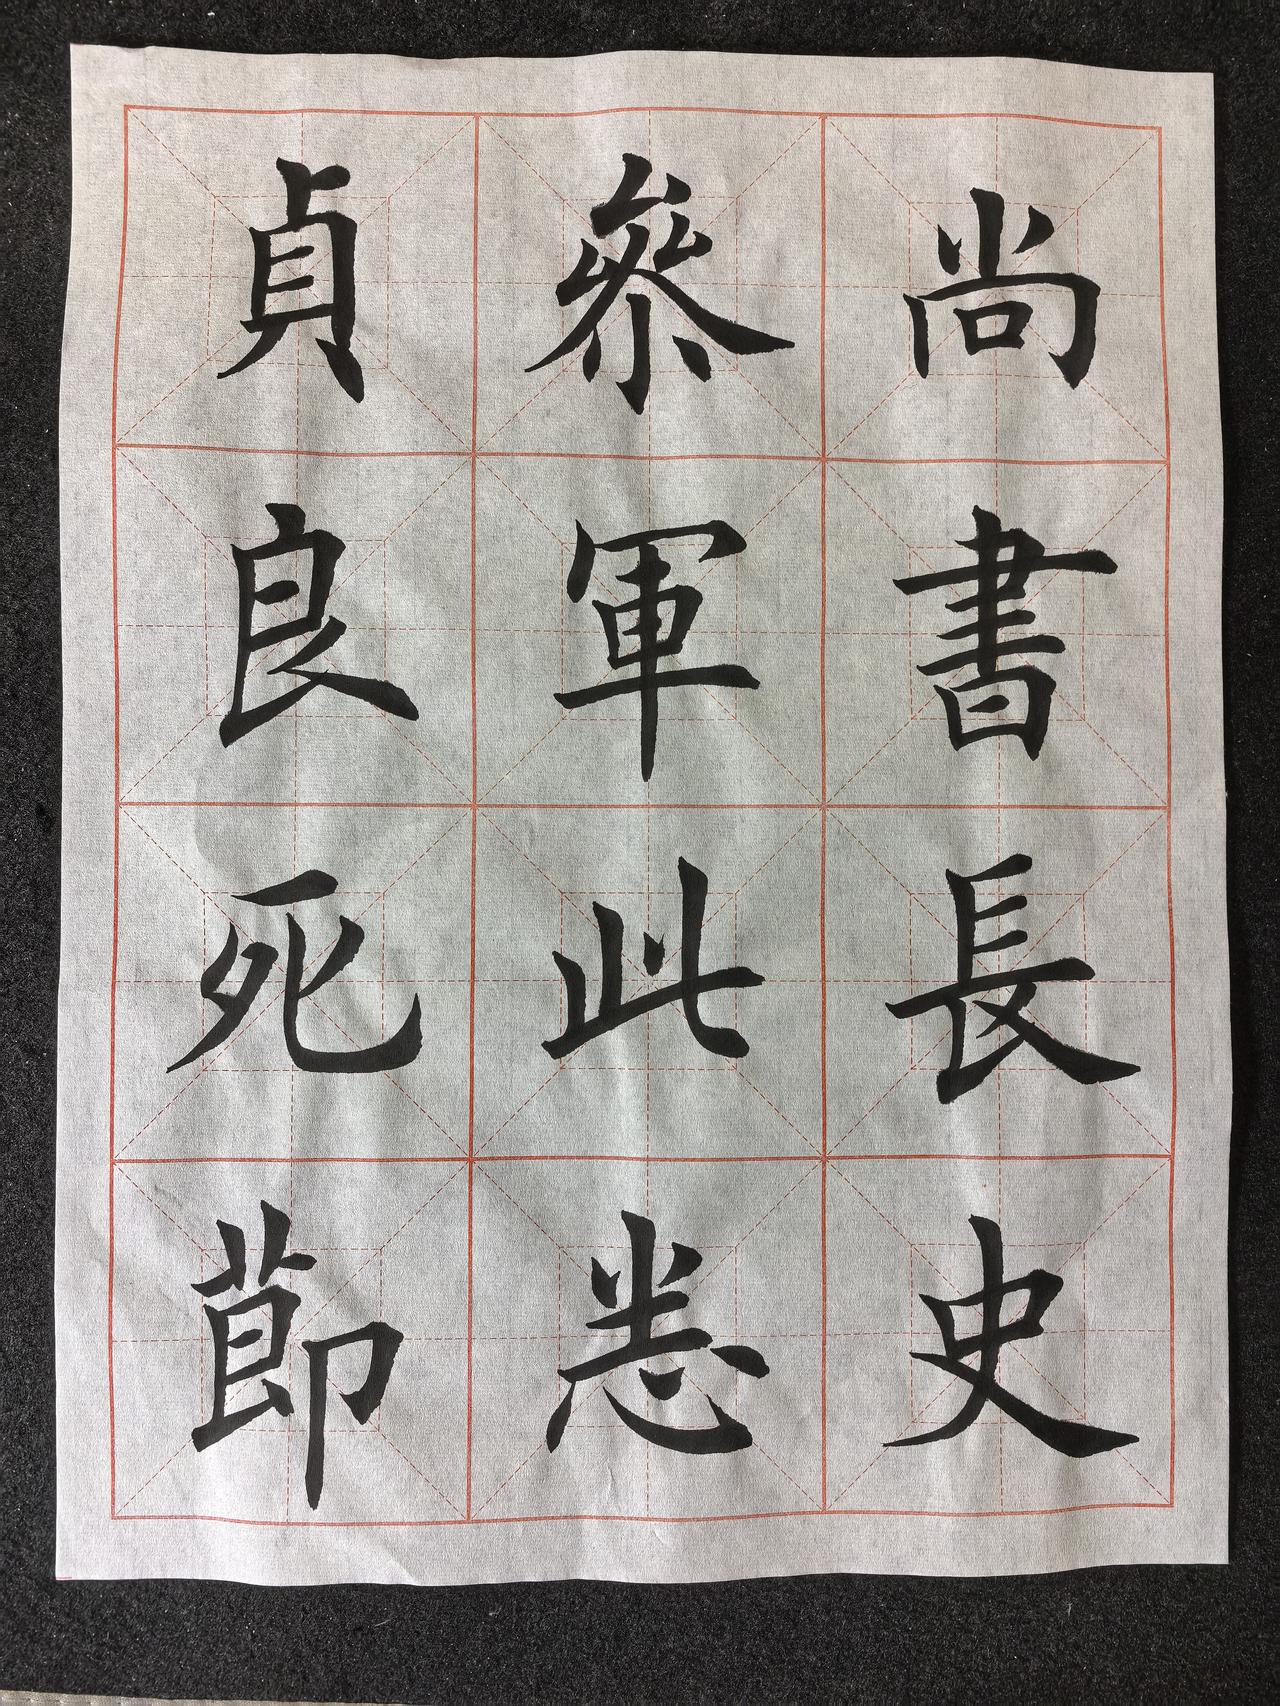 尚書長史
參軍此悉
貞良死莭